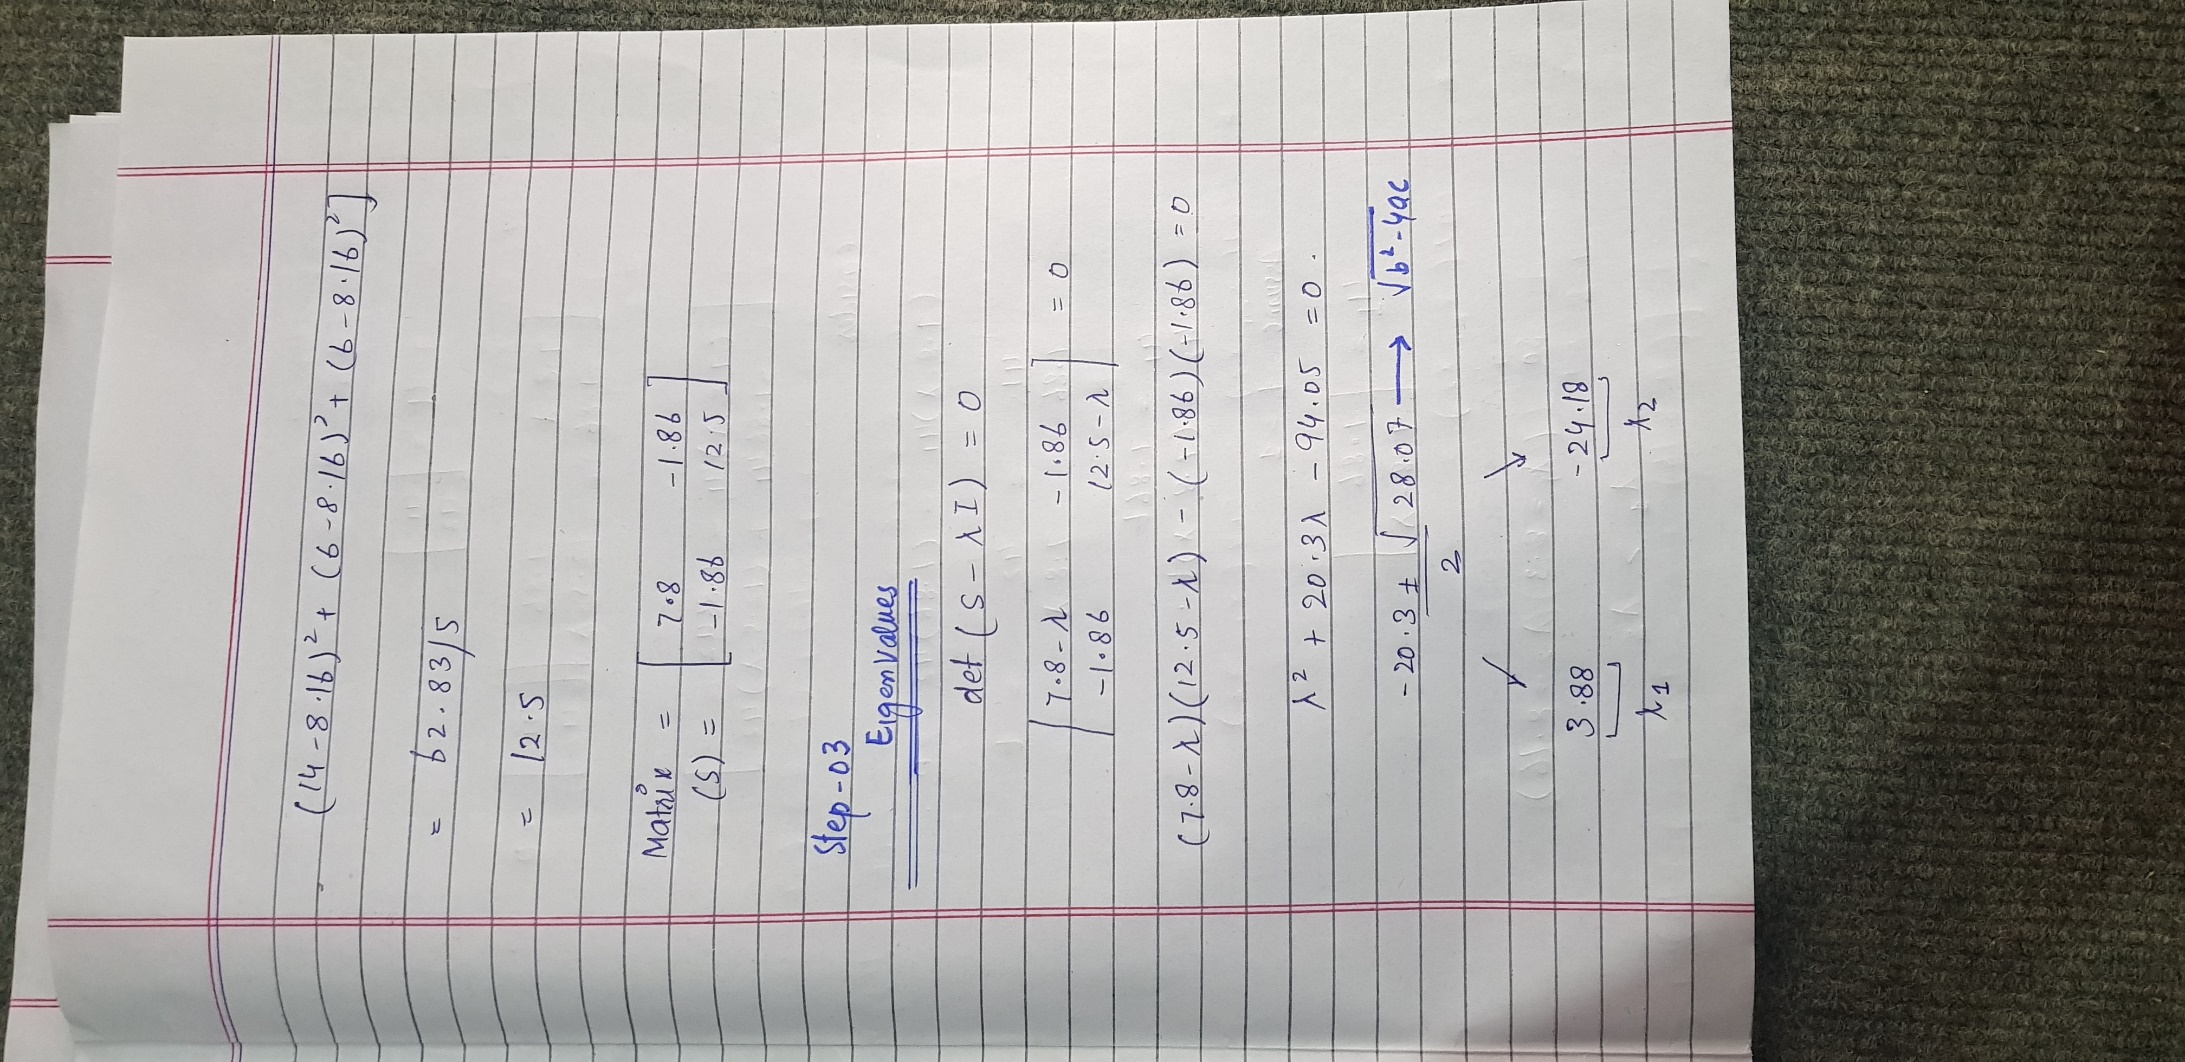 (14-8.16)² + (6-8.16)² + (6-8.16)²]
= 62.83/5
= 12.5
Matrix = [ 7.8 -1.86 ]
(S) = [ -1.86 12.5 ]
Step-03
Eigenvalues
det (S - λI) = 0
[ 7.8-λ -1.86 ] = 0
[ -1.86 12.5-λ ]
(7.8-λ)(12.5-λ) - (-1.86)(-1.86) = 0
λ² + 20.3λ - 94.05 = 0.
-20.3 ± √28.07 → √b²-4ac
2
3.88 -24.18
λ1 λ2